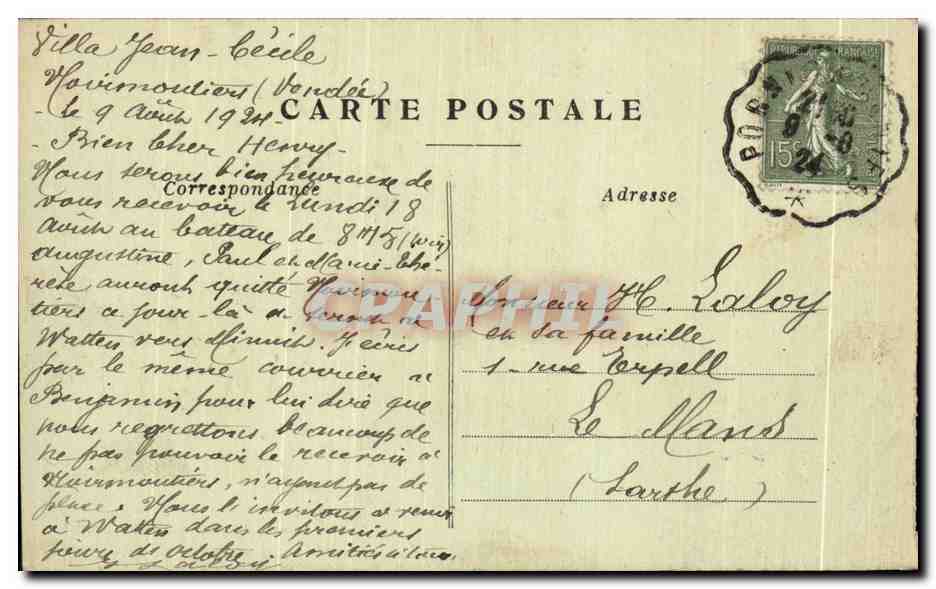 Villa Jean-Cécile
Noirmoutiers (Vendée)
- le 9 Août 1924 -
- Bien cher Henry -
Nous serons bien heureuse de
vous recevoir le Lundi 18
Août au bateau de 8h15 (soir)
Augustine, Paul et Marie-Thé-
rèse auront quitté Noirmou-
tiers ce jour-là et seront
Watten vers Minuit. J'écris
par le même courrier à
Benjamin pour lui dire que
nous regrettons beaucoup de
ne pas pouvoir le recevoir à
Noirmoutiers, n'ayant pas de
place. Nous l'invitons à venir
à Watten dans les premiers
jours d'octobre. Amitiés à tous.
Laloy
CARTE POSTALE
Correspondance
Adresse
Monsieur H. Laloy
et sa famille
1 - rue Erpell
Le Mans
(Sarthe)
REPUBLIQUE FRANÇAISE
15c
PORN
9 -8
24
CPAPHIL